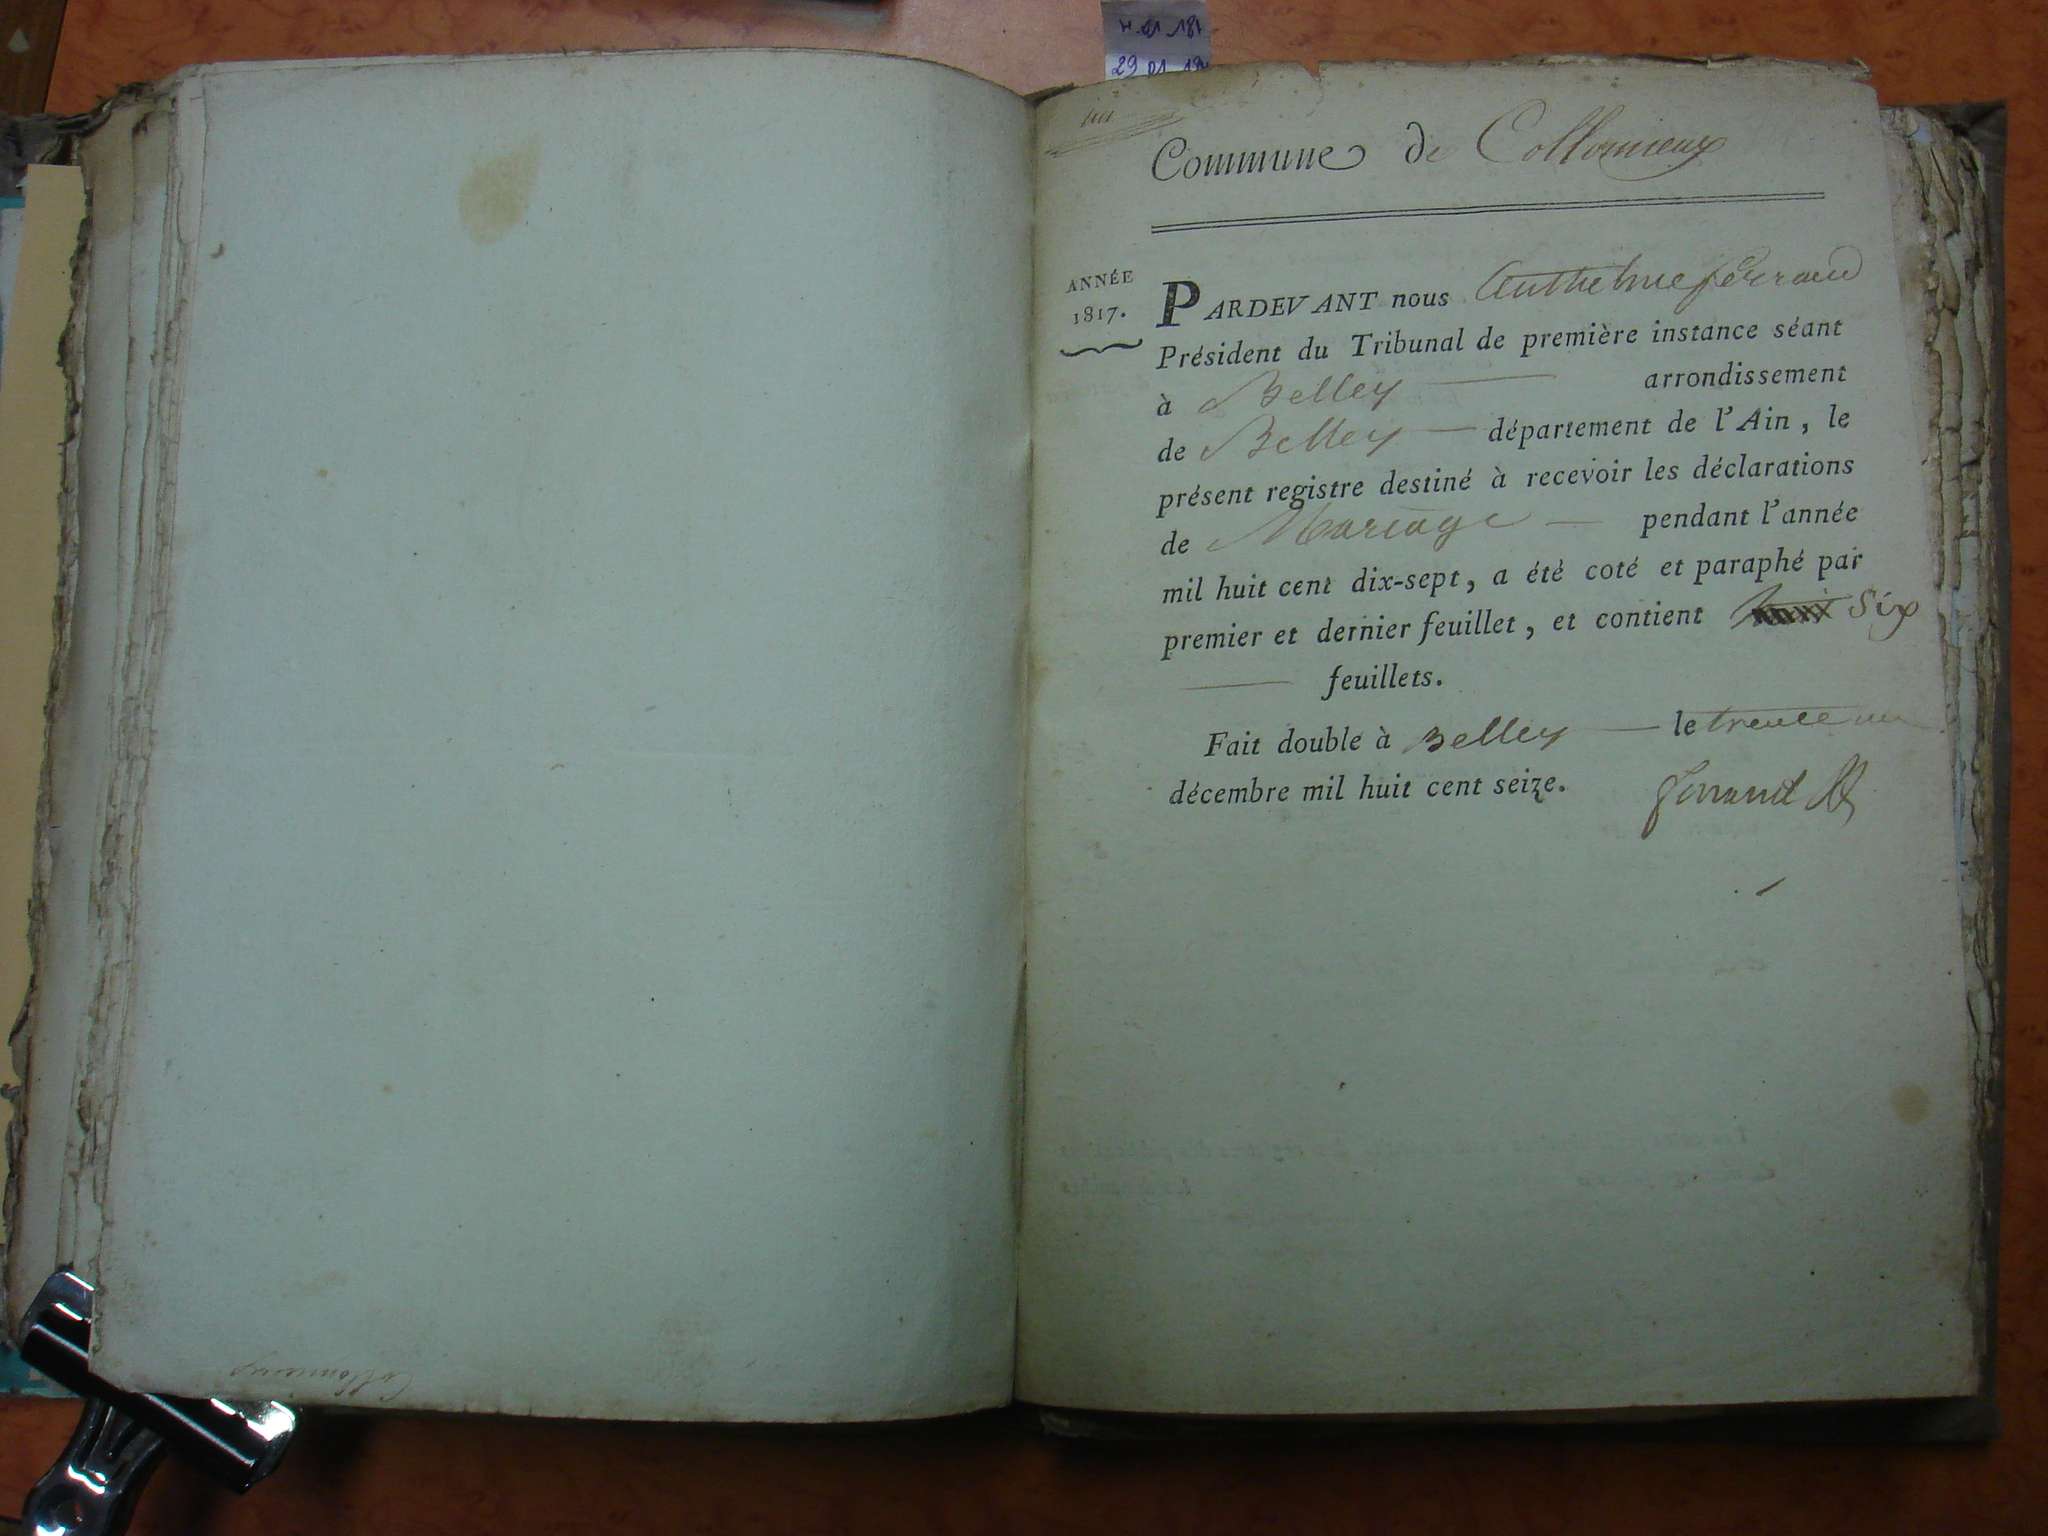 29 01 18
Commune de Collomieux
ANNÉE
1817.
PARDEVANT nous Anthelme ferrand
Président du Tribunal de première instance séant
à Belley arrondissement
de Belley département de l'Ain, le
présent registre destiné à recevoir les déclarations
de Mariage pendant l'année
mil huit cent dix-sept, a été coté et paraphé par
premier et dernier feuillet, et contient Six
feuillets.
Fait double à Belley le trente un
décembre mil huit cent seize.
ferrand
Collomieux